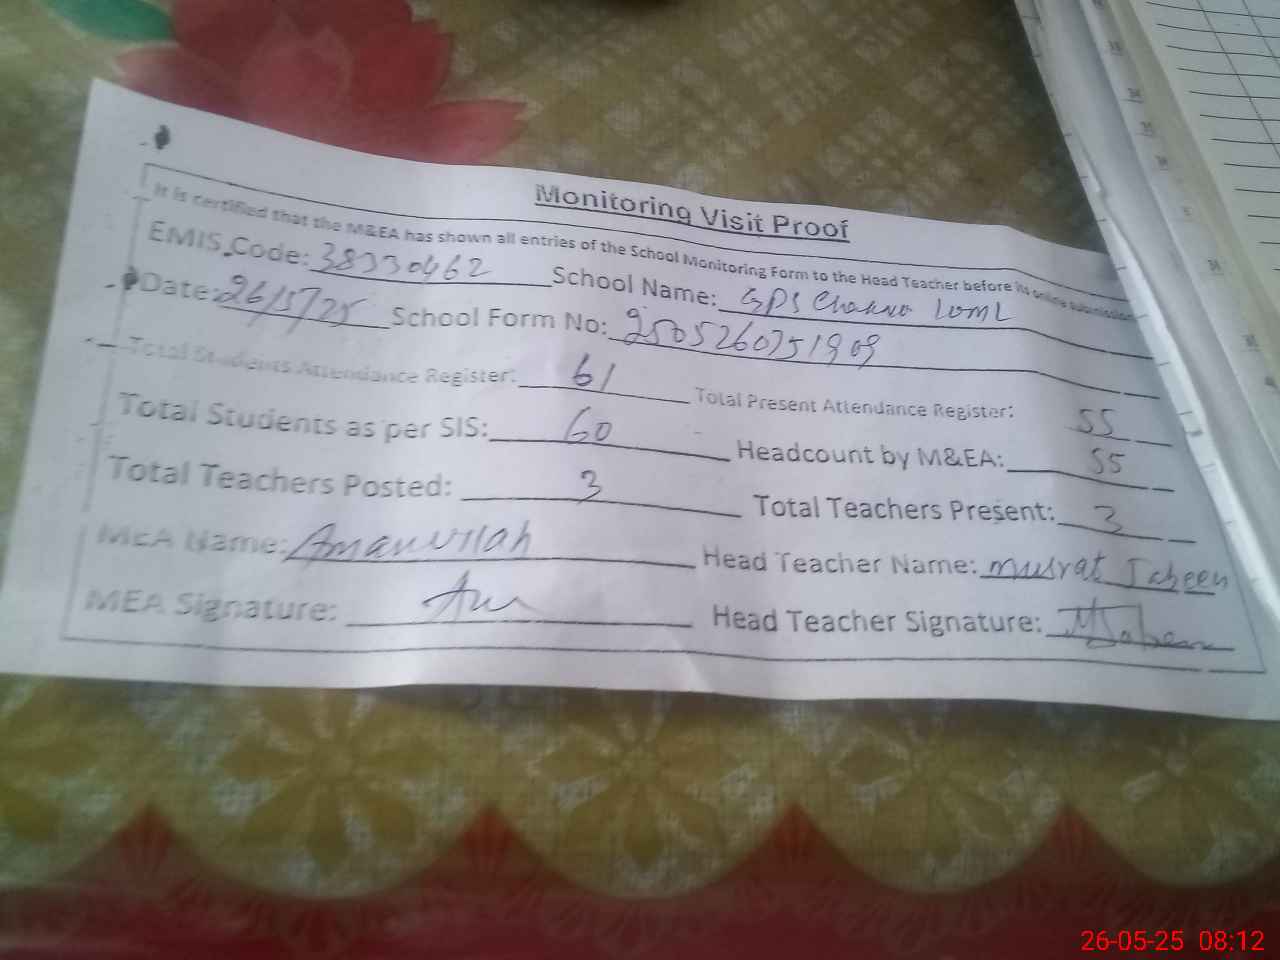 Monitoring Visit Proof
It is certified that the M&EA has shown all entries of the School Monitoring Form to the Head Teacher before its online submission
EMIS Code: 38330462 School Name: GPS
Date: 26/5/25 School Form No: 25052607519 09
Total Students Attendance Register: 61 Total Present Attendance Register: 55
Total Students as per SIS: 60 Headcount by M&EA: 55
Total Teachers Posted: 3 Total Teachers Present: 3
MEA Name: Amanullah Head Teacher Name: Musrat
MEA Signature: Head Teacher Signature:
26-05-25 08:12